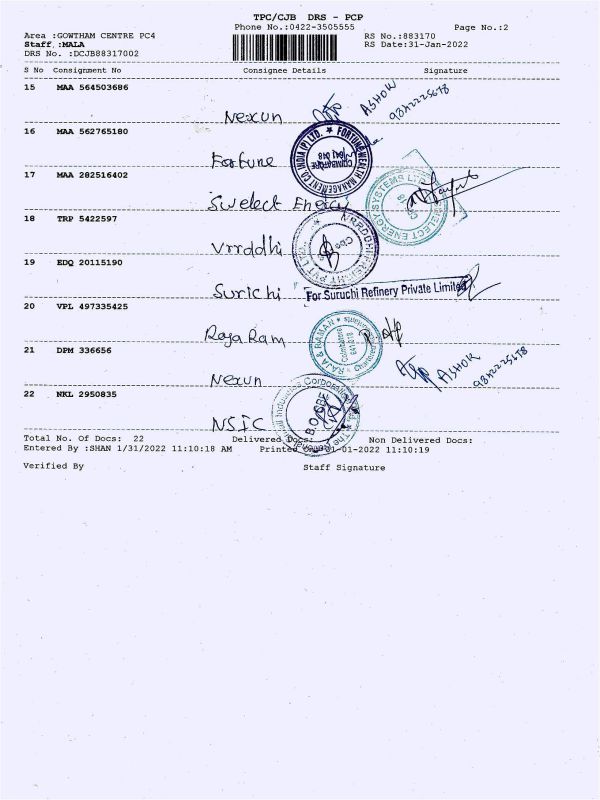 TPC/CJB DRS - PCP
Phone No.:0422-3505555
Page No.:2
Area :GOWTHAM CENTRE PC4
RS No.:883170
Staff :MALA
RS Date:31-Jan-2022
DRS No. :DCJB88317002
S No Consignment No Consignee Details Signature
15 MAA 564503686
Nexun ASHOK
16 MAA 562765180
Fortune
FORTUNE WEALTH MANAGEMENT CO. INDIA (P) LTD.
17 MAA 282516402
Swelect Energy
SWELECT ENERGY SYSTEMS LTD
18 TRP 5422597
Vrrddhi
19 EDQ 20115190
Surichi For Suruchi Refinery Private Limited
20 VPL 497335425
Raja Ram
RAJA & RAMAN
Chartered Accountants
Coimbatore
641 018
21 DPM 336656
Nexun ASHOK
22 NKL 2950835
NSIC
Total No. Of Docs: 22 Delivered Docs: Non Delivered Docs:
Entered By :SHAN 1/31/2022 11:10:18 AM Printed 11:10:19
Verified By Staff Signature